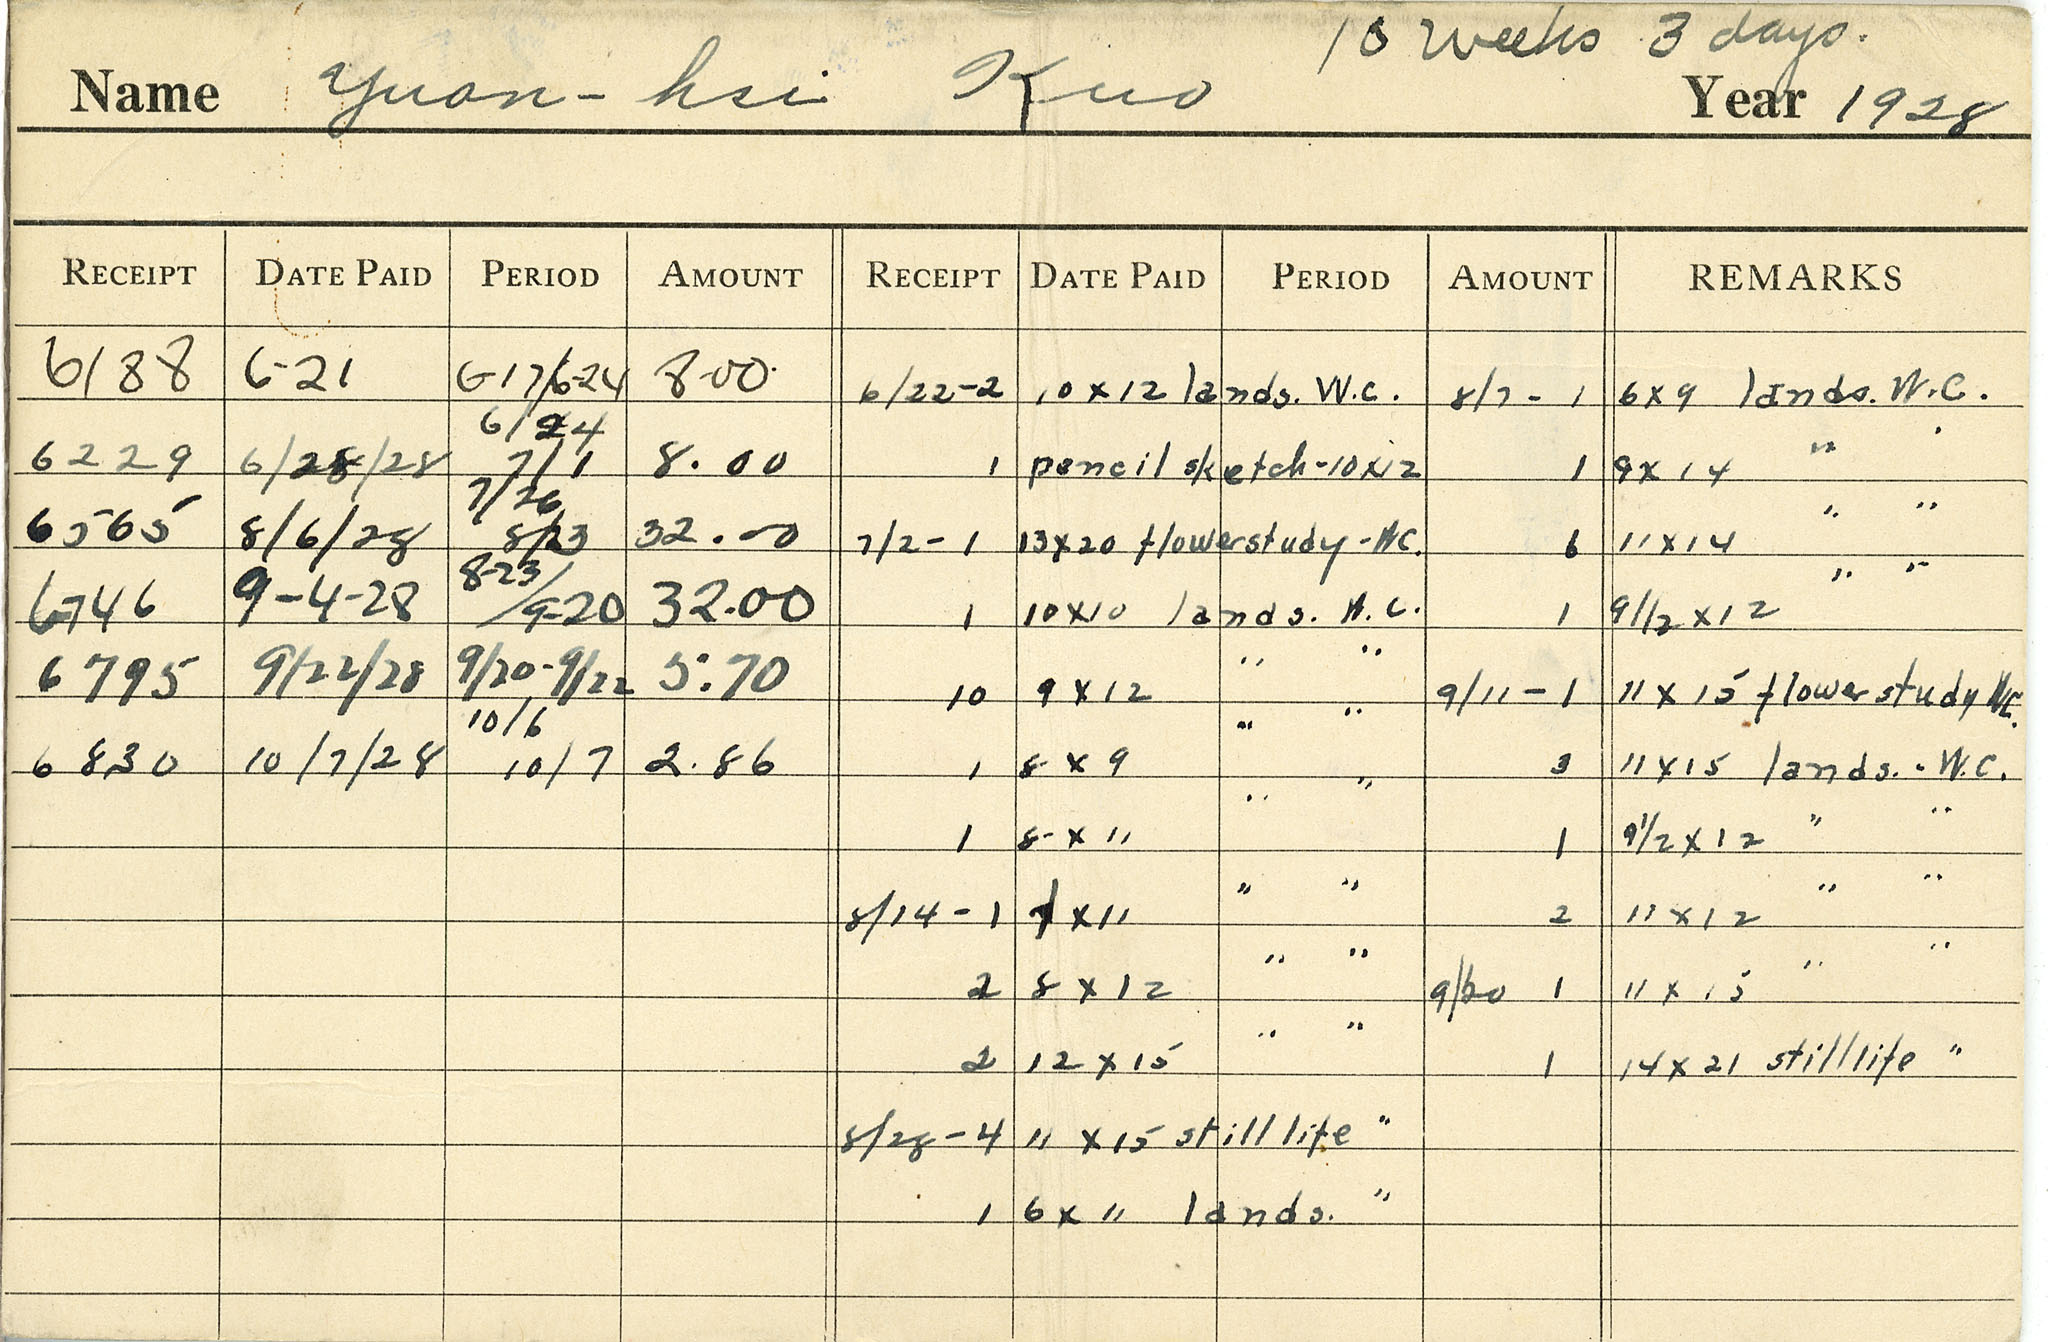 10 Weeks 3 days.
Name Yuan-hsi Kuo Year 1928
RECEIPT DATE PAID PERIOD AMOUNT RECEIPT DATE PAID PERIOD AMOUNT REMARKS
6188 6-21 6-17/6-24 8.00 6/22-2 10 x 12 lands. W.C. 8/7 - 1 6x9 lands. W.C.
6/24
6229 6/28/28 7/1 8.00 1 pencil sketch-10x12 1 9x14 " "
7/26
6565 8/6/28 8/23 32.00 7/2-1 13x20 flowerstudy-W.C. 6 11x14 " "
8-23
6746 9-4-28 /9-20 32.00 1 10x10 lands. W.C. 1 9 1/2 x 12 " "
6795 9/22/28 9/20-9/22 5.70 10 9 x 12 " " 9/11-1 11 x 15 flowerstudy W.C.
10/6
6830 10/7/28 10/7 2.86 1 8 x 9 " " 3 11x15 lands. - W.C.
1 8 x 11 " " 1 9 1/2 x 12 " "
8/14-1 x 11 " " 2 11x12 " "
2 8 x 12 " " 1 11 x 15 " "
2 12 x 15 " " 1 14x21 still life "
8/28-4 11 x 15 still life "
1 6x 11 lands. "